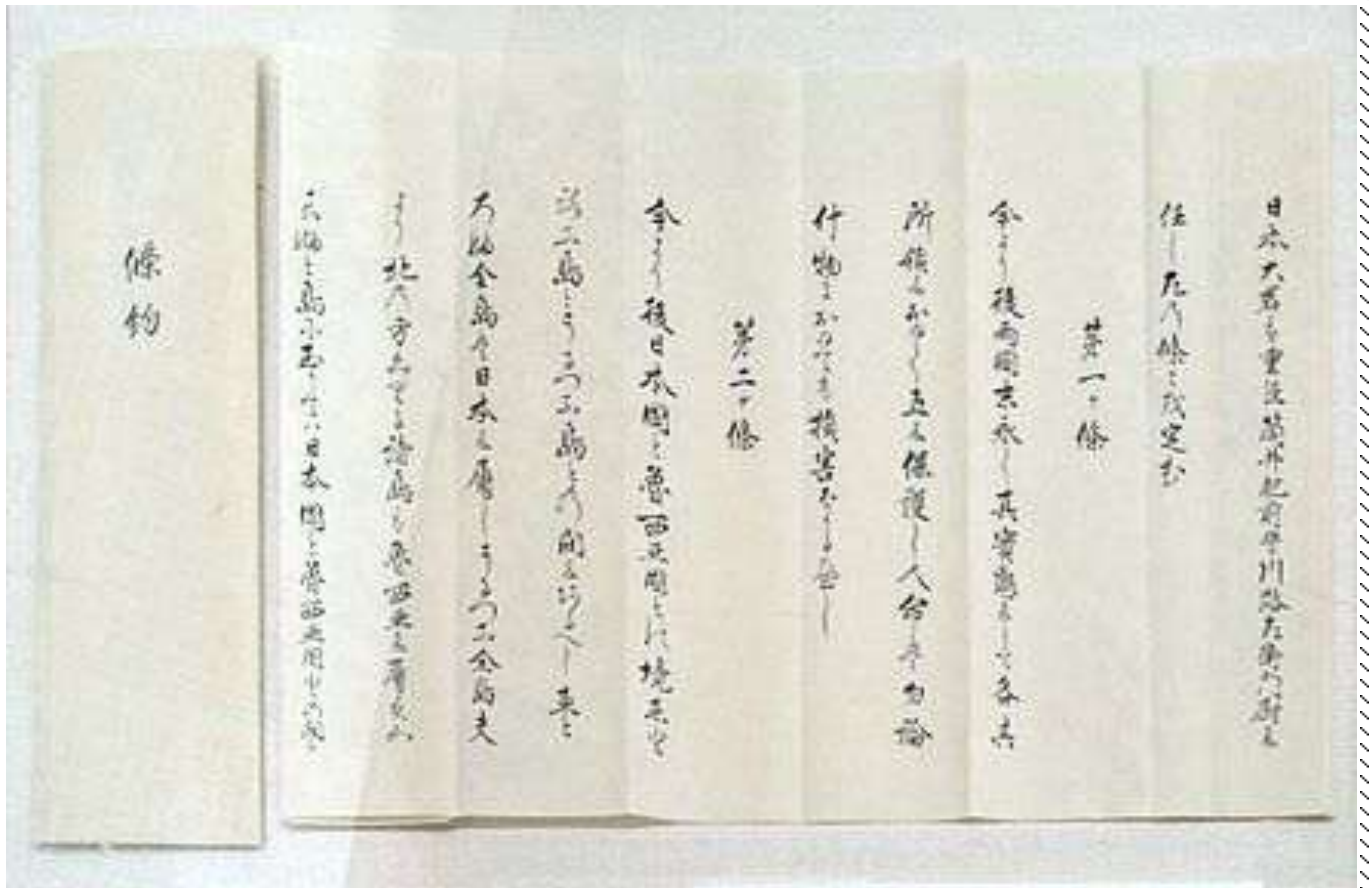 日本大君は重臣筒井肥前守川路左衛門尉に
任し左の條々を定む
第一ケ條
今より後両國末永く真實懇にして各其
所領におゐて互に保護し人命は勿論
什物におゐても損害なかるへし
第二ケ條
今より後日本國と魯西亜國との境ゑと
ろふ島とうるつふ島との間にあるへしゑと
ろふ全島は日本に属しうるつふ全島夫
より北の方くりる諸島は魯西亜に属す
らふと島に至りては日本國と魯西亜國
條約